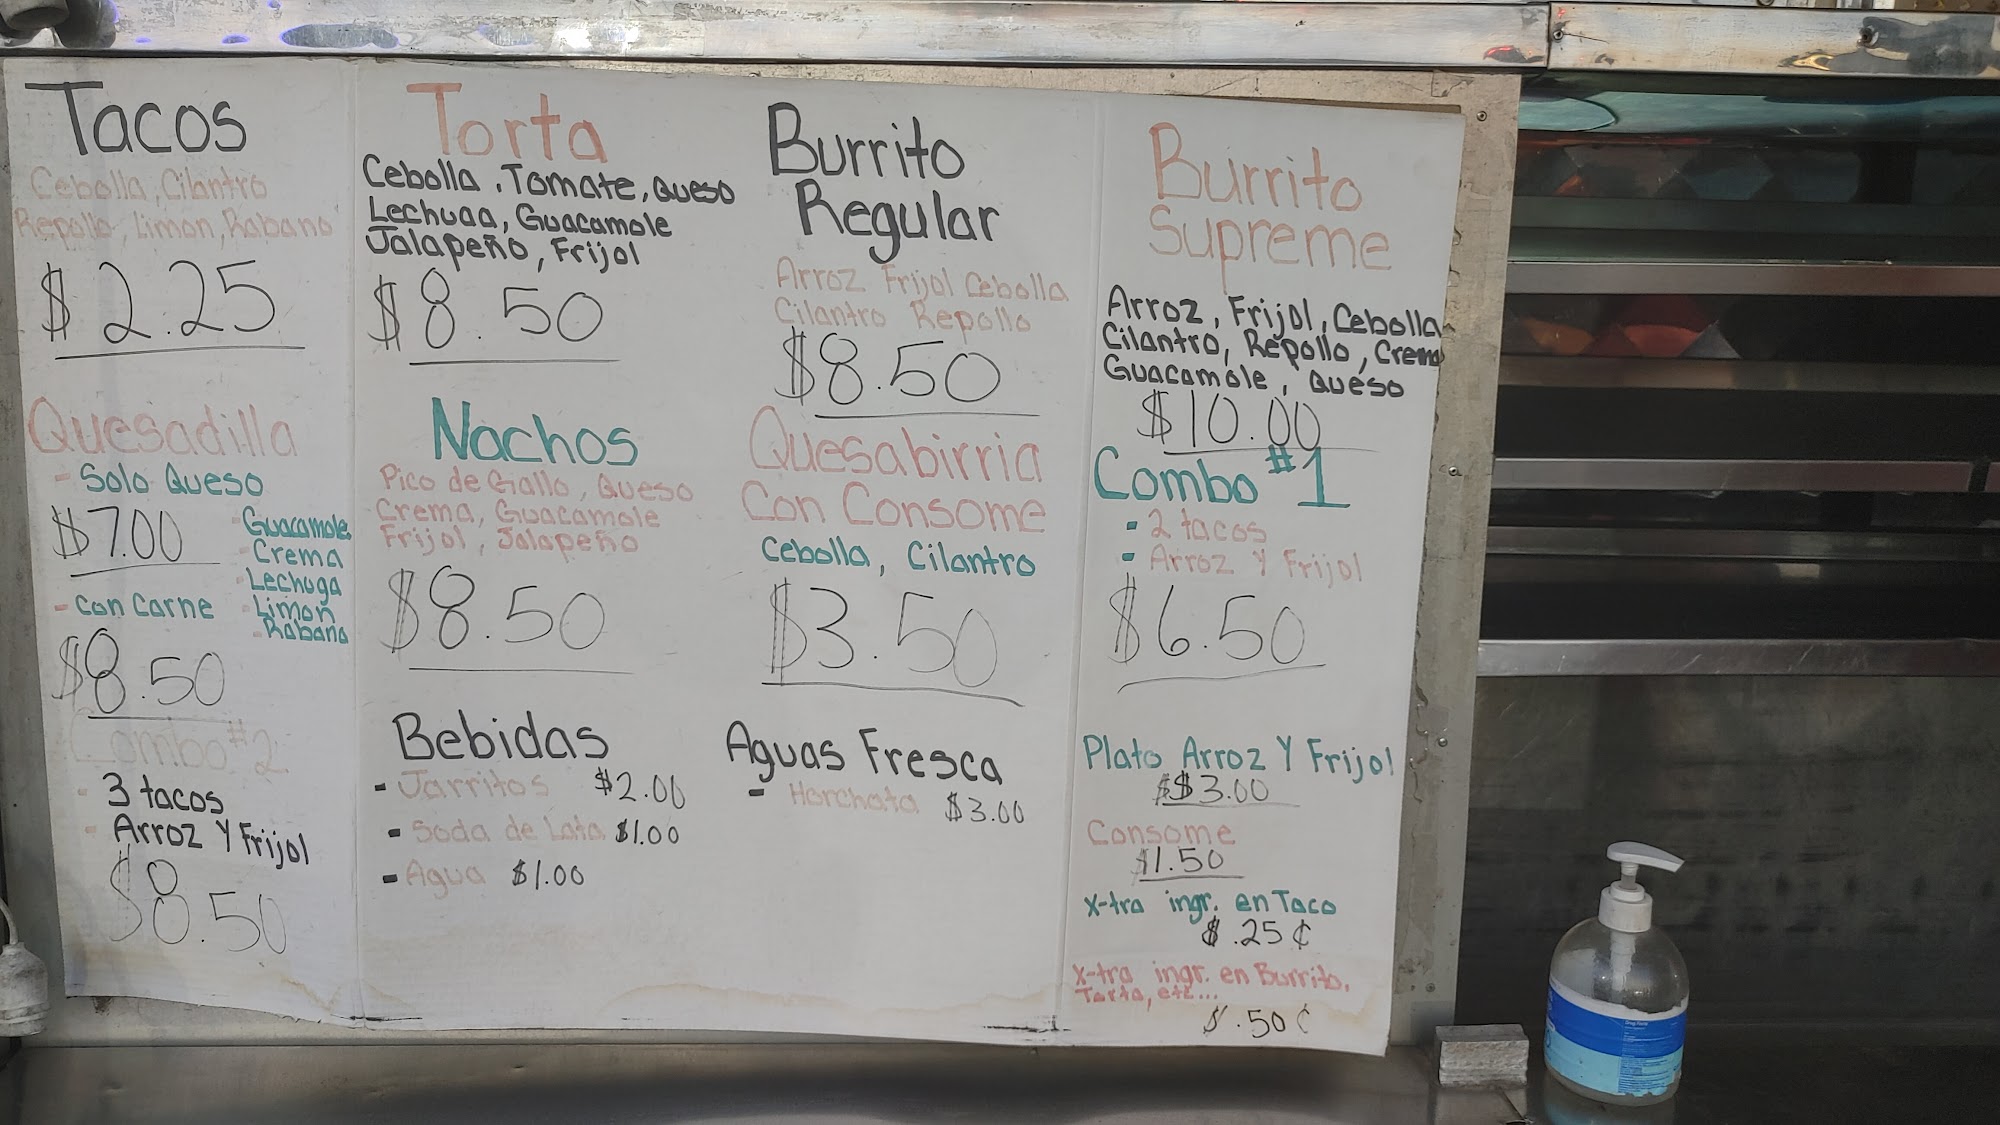 Tacos
Cebolla, Cilantro
Repollo, Limon, Rabano
$2.25
Quesadilla
- Solo Queso
$7.00
- Guacamole
- Crema
- Lechuga
- Limon
- Rabano
- Con Carne
$8.50
Combo #2
- 3 tacos
- Arroz Y Frijol
$8.50
Torta
Cebolla, Tomate, Queso
Lechuga, Guacamole
Jalapeño, Frijol
$8.50
Nachos
Pico de Gallo, Queso
Crema, Guacamole
Frijol, Jalapeño
$8.50
Bebidas
- Jarritos $2.00
- Soda de Lata $1.00
- Agua $1.00
Burrito
Regular
Arroz Frijol Cebolla
Cilantro Repollo
$8.50
Quesabirria
Con Consome
Cebolla, Cilantro
$3.50
Aguas Fresca
- Horchata $3.00
Burrito
Supreme
Arroz, Frijol, Cebolla
Cilantro, Repollo, Crema
Guacamole, Queso
$10.00
Combo #1
- 2 tacos
- Arroz Y Frijol
$6.50
Plato Arroz Y Frijol
$$3.00
Consome
$1.50
x-tra ingr. en Taco
$.25¢
x-tra ingr. en Burrito,
Torta, etc...
$.50¢